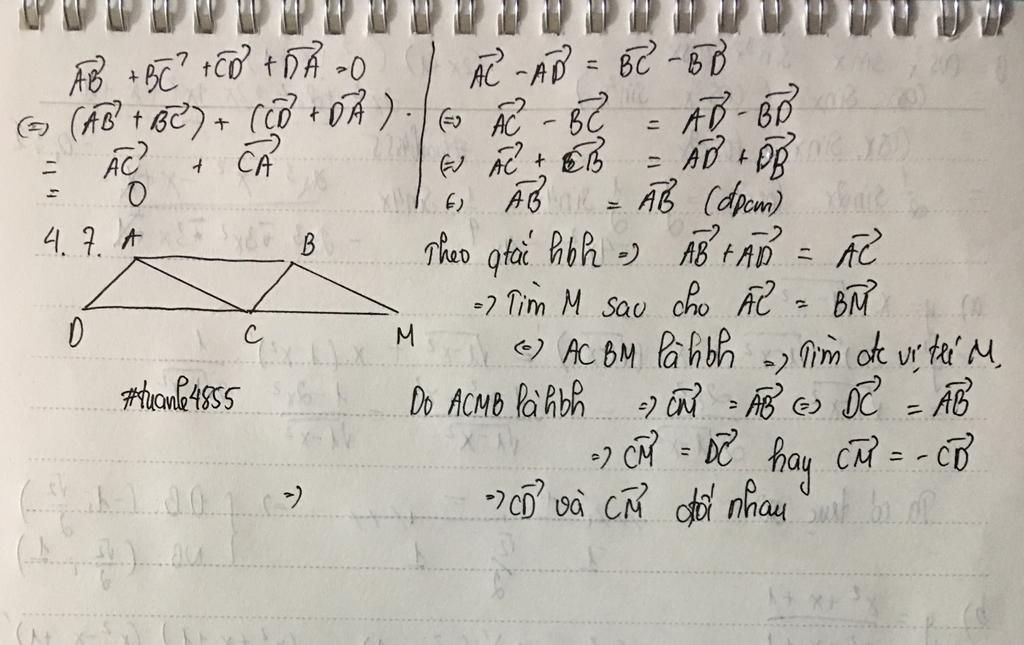 AB→ + BC→ + CD→ + DA→ = 0
<=> (AB→ + BC→) + (CD→ + DA→).
= AC→ + CA→
= 0
AC→ - AD→ = BC→ - BD→
<=> AC→ - BC→ = AD→ - BD→
<=> AC→ + CB→ = AD→ + DB→
<=> AB→ = AB→ (đpcm)
4.7.
A B
D C M
#tuanle4855
Theo qtắc hbh => AB→ + AD→ = AC→
=> Tìm M sao cho AC→ = BM→
<=> ACBM là hbh => Tìm đc vị trí M.
Do ACMB là hbh => CM→ = AB→ <=> DC→ = AB→
=> CM→ = DC→ hay CM→ = - CD→
=> => CD→ và CM→ đối nhau